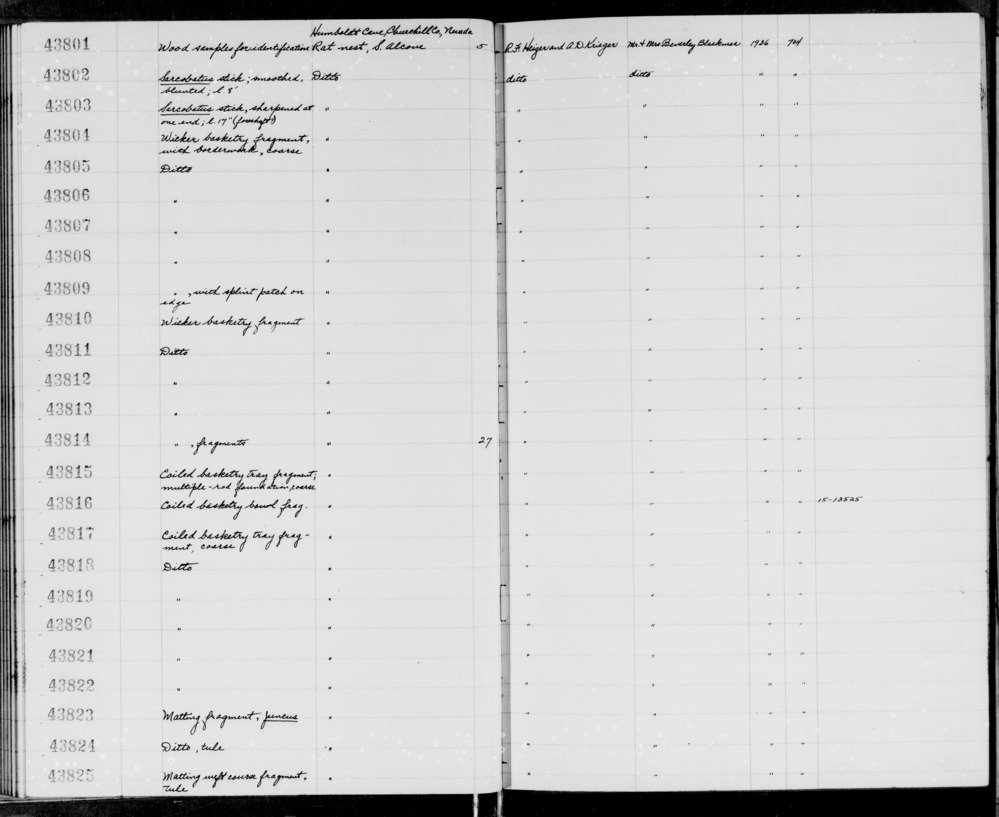 Humboldt Cave, Churchill Co, Nevada
43801 Wood samples for identification Rat nest, S. alcove 5 R.F. Heizer and A.D. Krieger Mr. & Mrs Beverley Blackmer 1936 704
43802 Sarcobatus stick; smoothed, Ditto ditto ditto " "
blunted; l. 8"
43803 Sarcobatus stick, sharpened at " " " " "
one end; l. 17" (foreshaft)
43804 Wicker basketry fragment, " " " " "
with borderwork, coarse
43805 Ditto " " " " "
43806 " " " " " "
43807 " " " " " "
43808 " " " " " "
43809 " , with splint patch on " " " " "
edge
43810 Wicker basketry fragment " " " " "
43811 Ditto " " " " "
43812 " " " " " "
43813 " " " " " "
43814 " , fragments " 27 " " " "
43815 Coiled basketry tray fragment; " " " " "
multiple-rod foundation, coarse
43816 Coiled basketry bowl frag. " " " " " 15-13525
43817 Coiled basketry tray frag- " " " " "
ment, coarse
43818 Ditto " " " " "
43819 " " " " " "
43820 " " " " " "
43821 " " " " " "
43822 " " " " " "
43823 Matting fragment, Juncus " " " " "
43824 Ditto, tule " " " " "
43825 Matting weft course fragment, " " " " "
tule